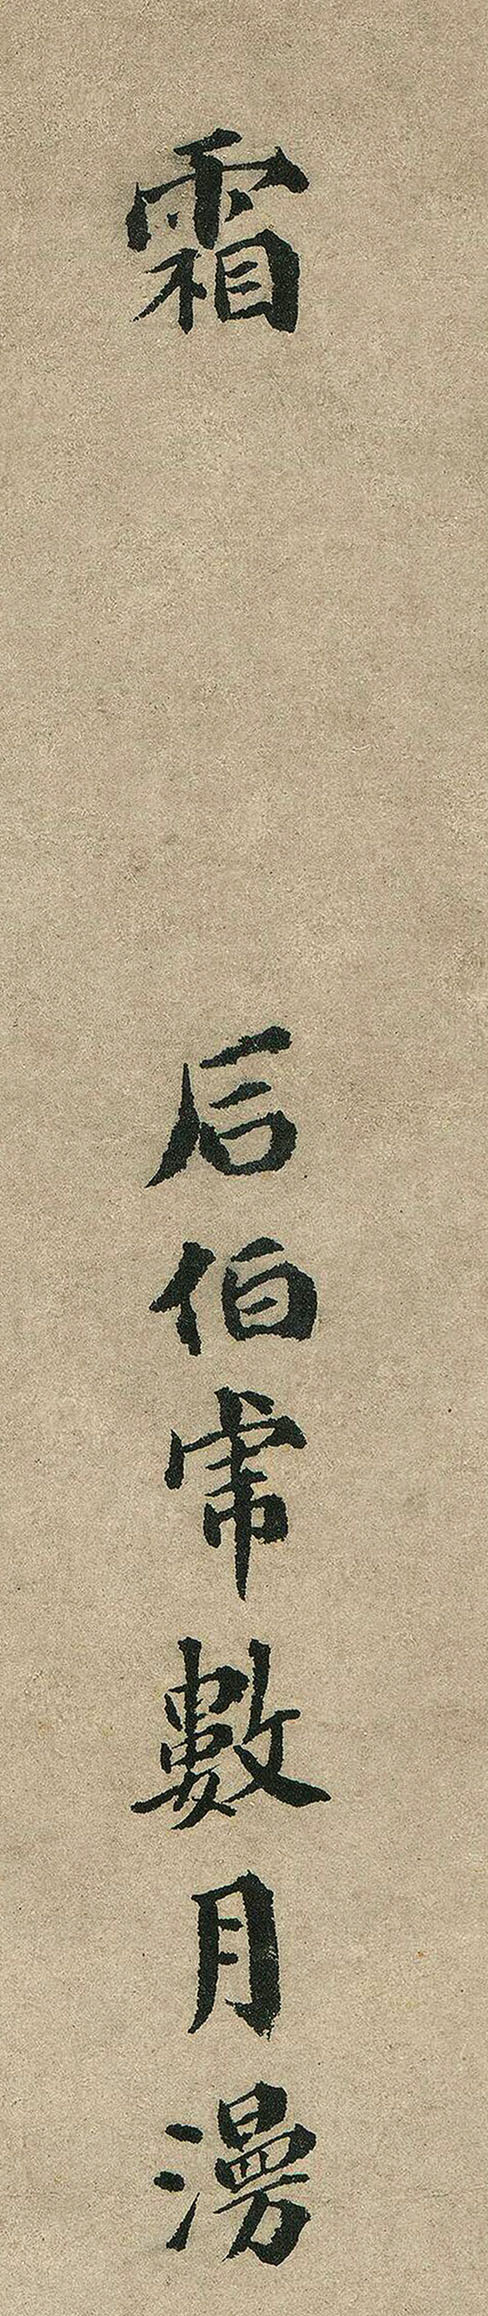 霜 后伯常數月漫